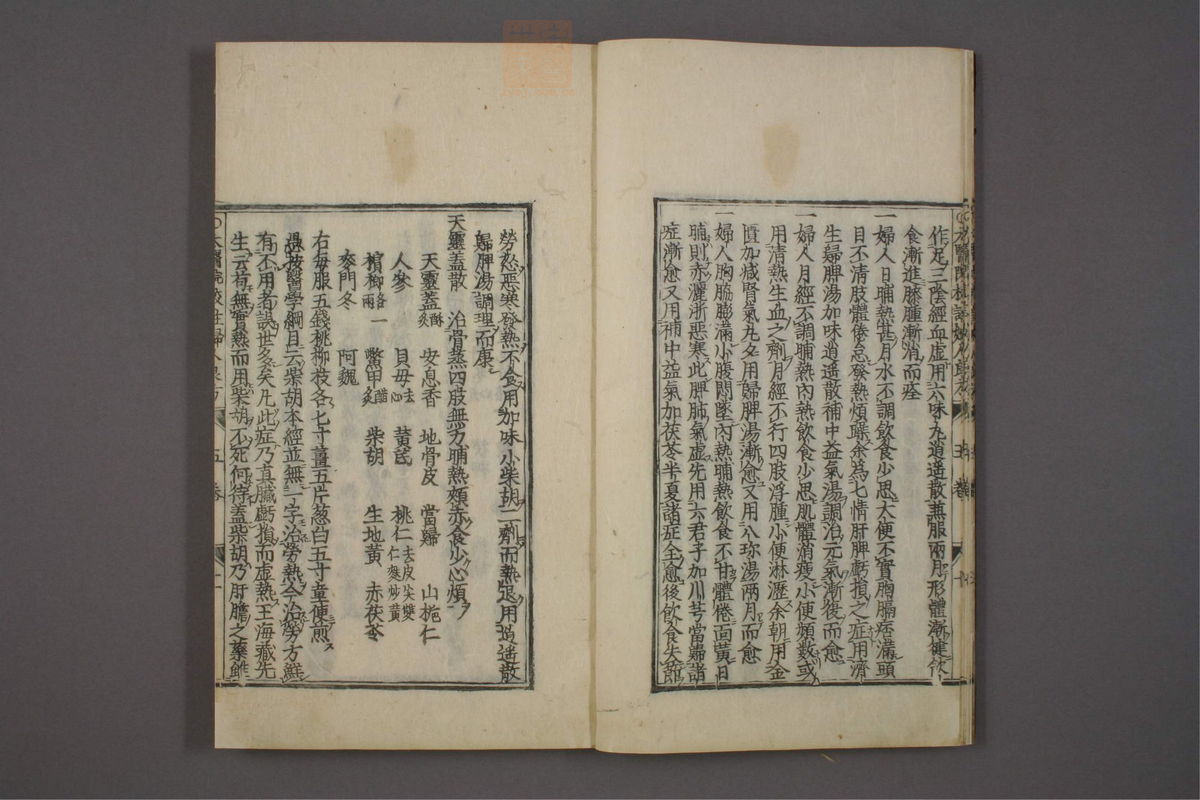 作足三陰經血虛用六味丸逍遥散兼服兩月形體漸健飲
食漸進膝腫漸消而痊
一婦人日晡熱甚月水不調飲食少思大便不實胸膈痞滿頭
目不清肢體倦怠發熱煩躁余爲七情肝脾虧損之症用濟
生歸脾湯加味逍遥散補中益氣湯調治元氣漸復而愈
一婦人月經不調晡熱內熱飲食少思肌體消瘦小便頻數或
用清熱生血之劑月經不行四肢浮腫小便淋瀝余朝用金
匱加减腎氣丸夕用歸脾湯漸愈又用八珎湯兩月而愈
一婦人胸脇膨滿小腹悶墜內熱晡熱飲食不甘體倦面黃日
晡則赤灑淅惡寒此脾肺氣虛先用六君子加川芎當歸諸
症漸愈又用補中益氣加茯苓半夏諸症全愈後飲食失節
勞怒惡寒發熱不食用加味小柴胡二劑而熱退用逍遥散
歸脾湯調理而康
天靈蓋散 治骨蒸四肢無力晡熱頰赤食少心煩
天靈蓋酥炙 安息香 地骨皮 當歸 山梔仁
人參 貝母去心 黃芪 桃仁去皮尖雙仁麩炒黃
檳榔兩一 鱉甲醋炙 柴胡 生地黃 赤茯苓
麥門冬 阿魏
右每服五錢桃柳枝各七寸薑五片葱白五寸童便煎
愚按醫學綱目云柴胡本經並無一字治勞熱今治勞方鮮
有不用者誤世多矣凡此症乃眞臟虧損而虛熱王海藏先
生云有無實熱而用柴胡不死何待蓋柴胡乃肝膽之藥雖